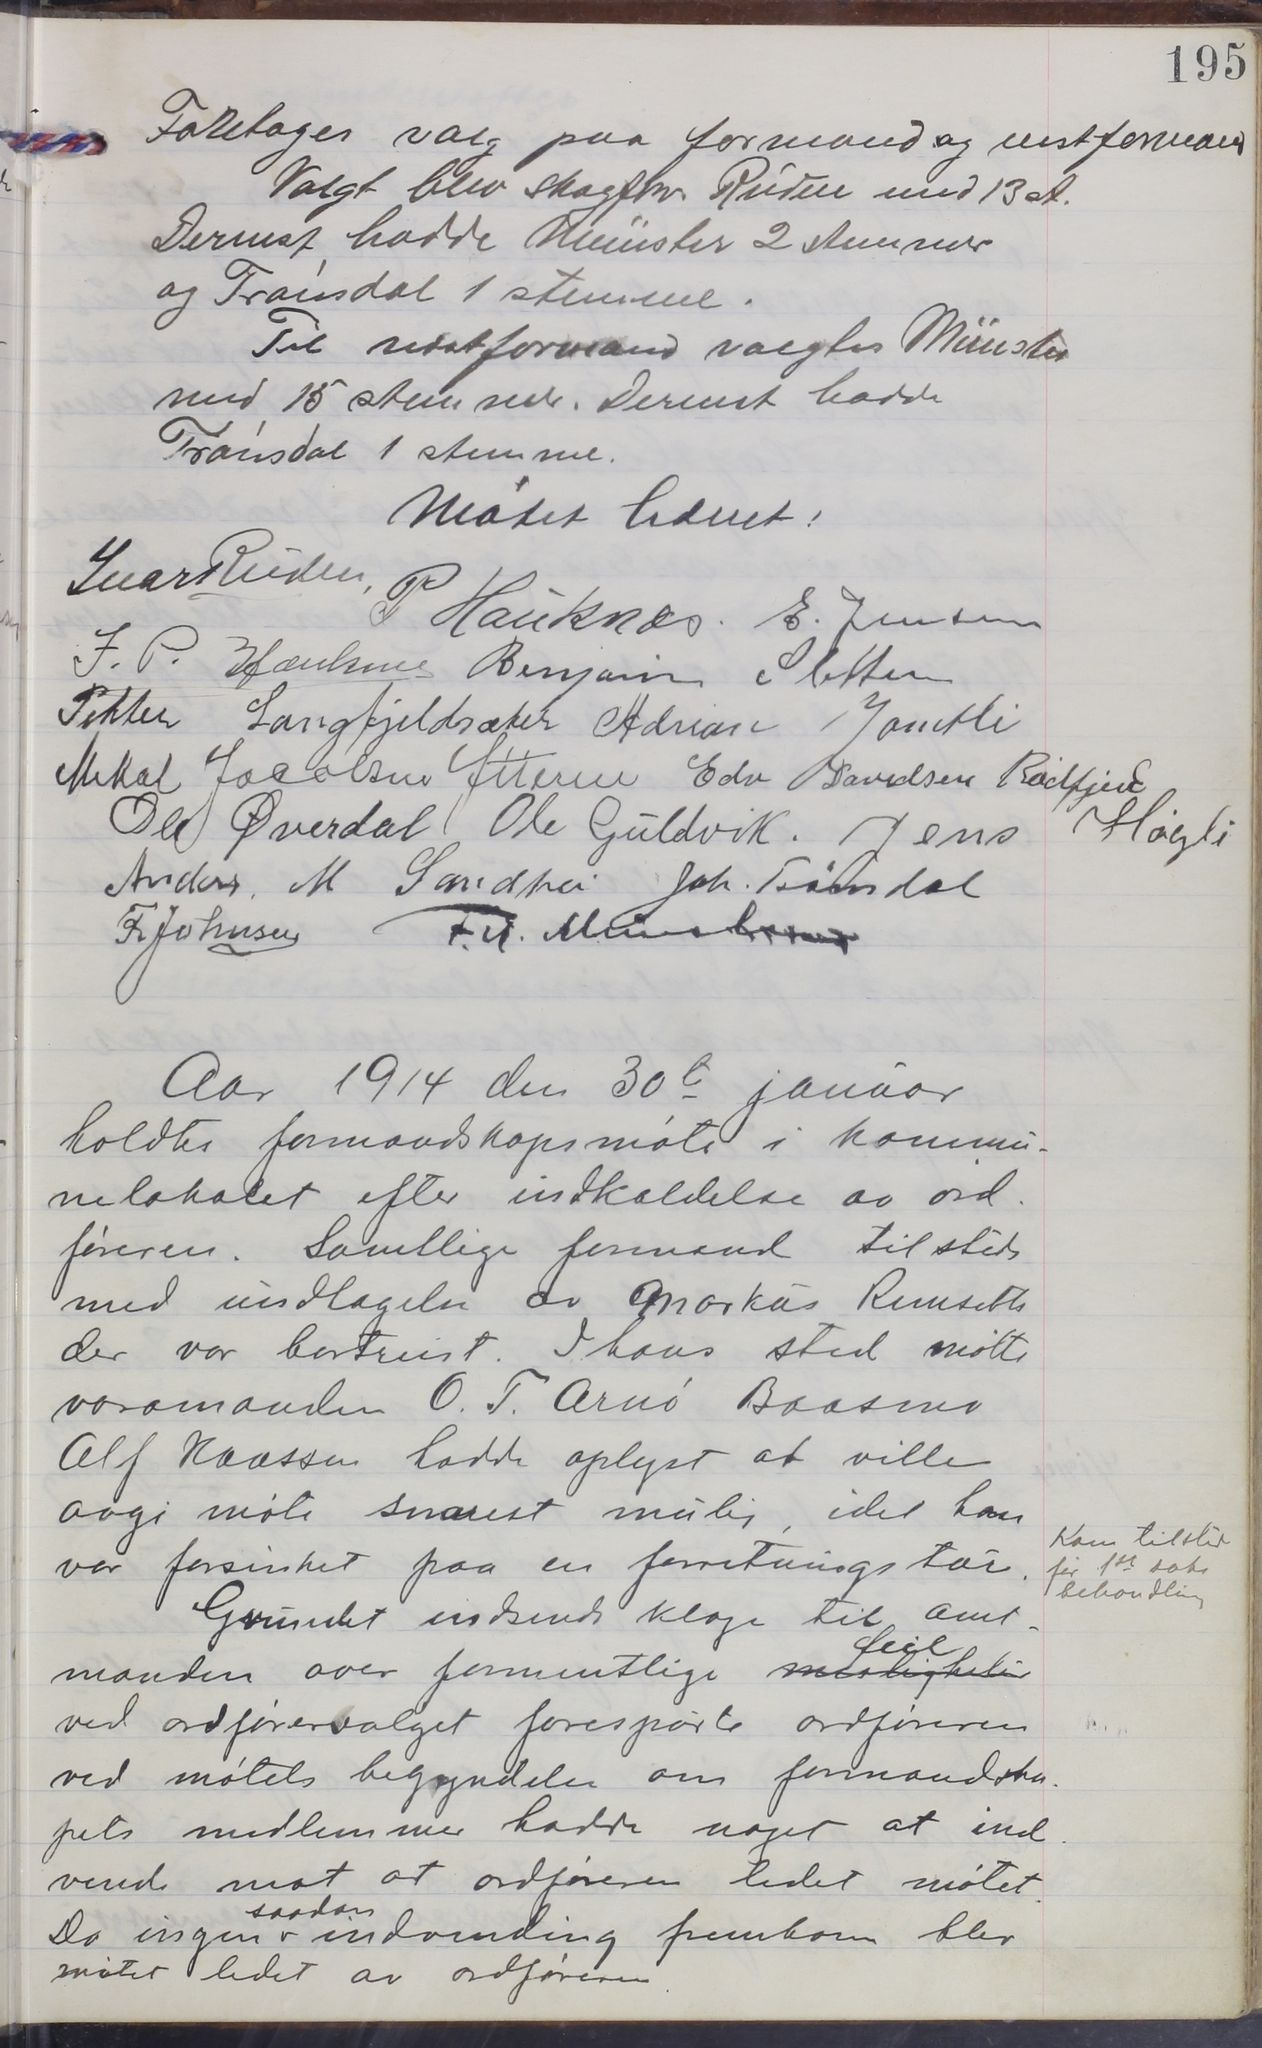 195
Foretages valg paa formand og nestformand
Valgt blev skogforv. Rüden med 13 st.
Dernest hadde Münster 2 stemmer
og Traúsdal 1 stemme.
Til nestformand valgtes Münster
med 15 stemmer. Dernest hadde
Traúsdal 1 stemme.
Mötet hævet!
Ivar Rüden,
P Hauknæs. E. Jensen
J. P. Benjamin Sletten
Petter Langfjeldsæter Adrian Jamtli
Mikal Jacobsen Ytteren Edv Davidsen Rødfjeld
Ole Øverdal Ole Guldvik. Jens Høgli
Anders. M Sandhei Joh. Traúsdal
Fr Johnsen F. U. Münster
Aar 1914 den 30te januar
holdtes formandskapsmöte i kommu-
nelokalet efter indkaldelse av ord-
föreren. Samtlige formænd tilstede
med undtagelse av Markus Remseth
der var bortreist. I hans sted mötte
varamanden O. T. Arnö Baasmo
Alf Naassen hadde oplyst at ville
avgi möte snarest mulig, idet han
var forsinket paa en forretningstur.
Kom tilstede
för 1ste saks
behandling
Grundet indsendt klage til amt-
manden over formentlige misligheter feil
ved ordförervalget foresporte ordföreren
ved mötets begyndelse om formandska-
pets medlemmer hadde noget at ind-
vende mot at ordföreren ledet mötet.
Da ingen saadan indvending fremkom blev
mötet ledet av ordföreren.